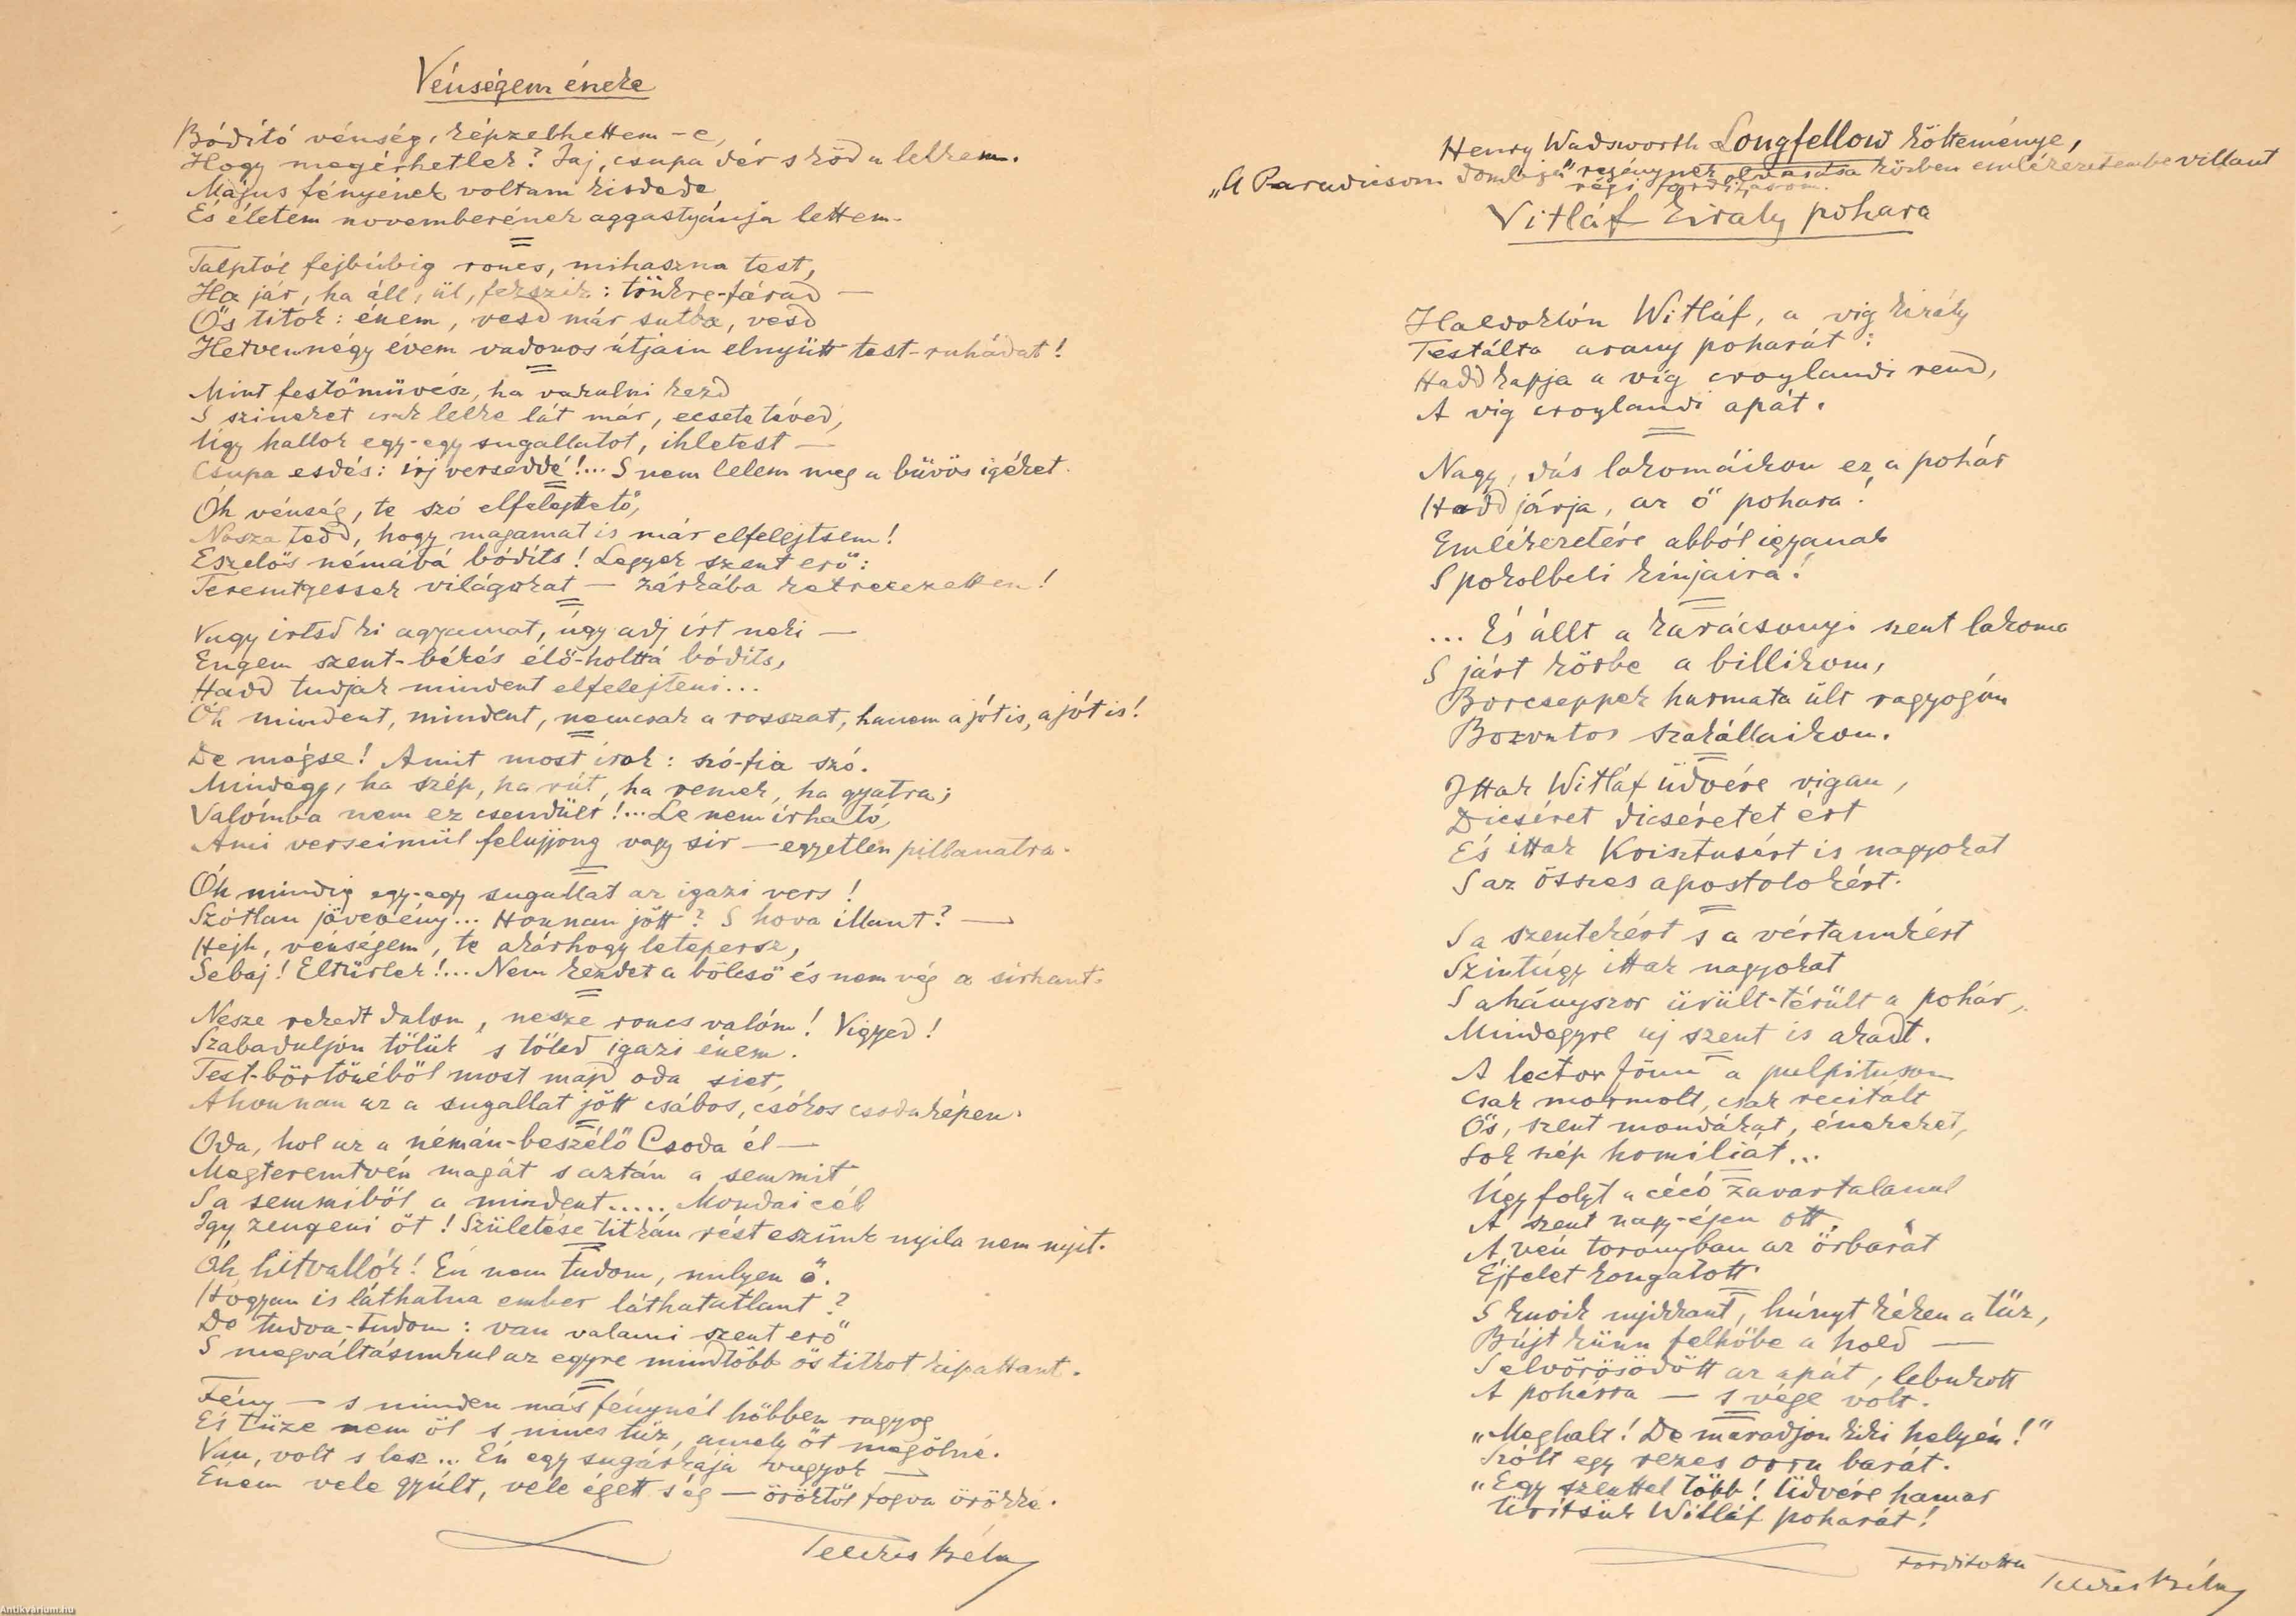 Vénségem éneke
Bódító vénség, képzelhettem-e,
Hogy megérhetlek? Jaj, csupa dér s köd a lelkem.
Május fényének voltam kisdede
És életem novemberének aggastyánja lettem.
Talptól fejbúbig roncs, mihaszna test,
Ha jár, ha áll, ül, fekszik: tönkre-fárad —
Ős titok: énem, vesd már sutba, vesd
Hetvennégy évem vadonos útjain elnyütt test-ruhádat!
Mint festőművész, ha vakulni kezd
S szineket csak lelke lát már, ecsete téved,
Úgy hallok egy-egy sugallatot, ihletest —
Csupa esdés: írj verseddé!... S nem lelem meg a bűvös igéket.
Óh vénség, te szó elfelejttető,
Nosza tedd, hogy magamat is már elfelejtsem!
Eszelős némává bódíts! Legyek szent erő:
Teremtgessek világokat — zárkába ketrecezetten!
Vagy irtsd ki agyamat, úgy adj írt neki —
Engem szent-békés élő-holttá bódíts,
Hadd tudjak mindent elfelejteni...
Óh mindent, mindent, nemcsak a rosszat, hanem a jót is, a jót is!
De mégse! Amit most írok: szó-fia szó.
Mindegy, ha szép, ha rút, ha remek, ha gyatra;
Valómba nem ez csendült!... Le nem írható,
Ami verseimül felujjong vagy sír — egyetlen pillanatra.
Óh mindig egy-egy sugallat az igazi vers!
Szótlan jövevény... Honnan jött? S hova illant? —
Hejh, vénségem, te akárhogy letepersz,
Sebaj! Eltűrlek!... Nem kezdet a bölcső és nem vég a sirhant.
Nesze rekedt dalom, nesze roncs valóm! Vigyed!
Szabaduljon tőlük s tőled igazi énem.
Test-börtönéből most majd oda siet,
Ahonnan az a sugallat jött csábos, csókos csodaképen.
Oda, hol az a némán-beszélő Csoda él —
Megteremtvén magát s aztán a semmit
S a semmiből a mindent..... Mondai cél
Igy zengeni őt! Születése titkán rést eszünk nyila nem nyit.
Óh hitvallók! Én nem tudom, milyen ő.
Hogyan is láthatna ember láthatatlant?
De tudva-tudom: van valami szent erő
S megváltásunkul az egyre mindtöbb ős titkot kipattant.
Fény — s minden más fénynél hőbben ragyog
És tüze nem öl s nincs tűz, amely őt megölné.
Van, volt s lesz... Én egy sugárkája vagyok —
Énem vele gyúlt, vele égett s ég — öröktől fogva örökké.
Telekes Béla
Henry Wadsworth Longfellow költeménye,
„A Paradicsom dombja" regénynek olvasása közben emlékezetembe villant
régi fordításom.
Vitláf király pohara
Haldoklón Witláf, a vig király
Testálta arany poharát:
Hadd kapja a vig croylandi rend,
A vig croylandi apát.
Nagy, dús lakomáikon ez a pohár
Hadd járja, az ő pohara!
Emlékezetére abból igyanak
S pokolbeli kínjaira!
... És állt a karácsonyi szent lakoma
S járt körbe a billikom,
Borcseppek harmata ült ragyogón
Bozontos szakállaikon.
Ittak Witláf üdvére vigan,
Dicséret dicséretet ért
És ittak Krisztusért is nagyokat
S az összes apostolokért.
S a szentekért s a vértanukért
Szintúgy ittak nagyokat
S ahányszor ürült-térült a pohár,
Mindegyre uj szent is akadt.
A lector fönn a pulpituson
Csak mormolt, csak recitált
Ős, szent mondákat, énekeket,
Sok szép homíliát...
Úgy folyt a cécó zavartalanul
A szent nagy-éjen ott.
A vén toronyban az őrbarát
Éjfelet kongatott.
S knoik nyikkant, húnyt kéken a tűz,
Bújt künn felhőbe a hold —
S elvörösödött az apát, lebukott
A pohárra — s vége volt.
„Meghalt! De maradjon kiki helyén!"
Szólt egy rezes orru barát.
„Egy szenttel több! Üdvére hamar
Ürítsük Witláf poharát!
Fordította
Telekes Béla
Antikvarium.hu